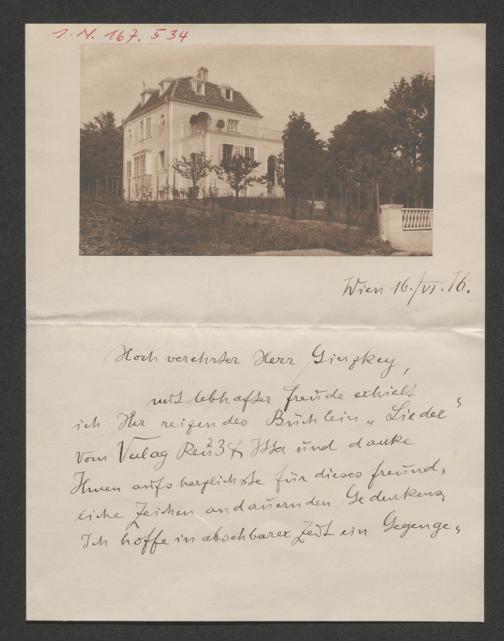 I. N. 167.534
Wien 16./VI. 16.
Hoch verehrter Herr Ginzkey,
mit lebhafter Freude erhielt
ich Ihr reizendes Büchlein „Lieder"
vom Verlag und danke
Ihnen aufs herzlichste für dieses freund„
liche Zeichen andauernden Gedenkens,
Ich hoffe in absehbarer Zeit ein Gegenge„